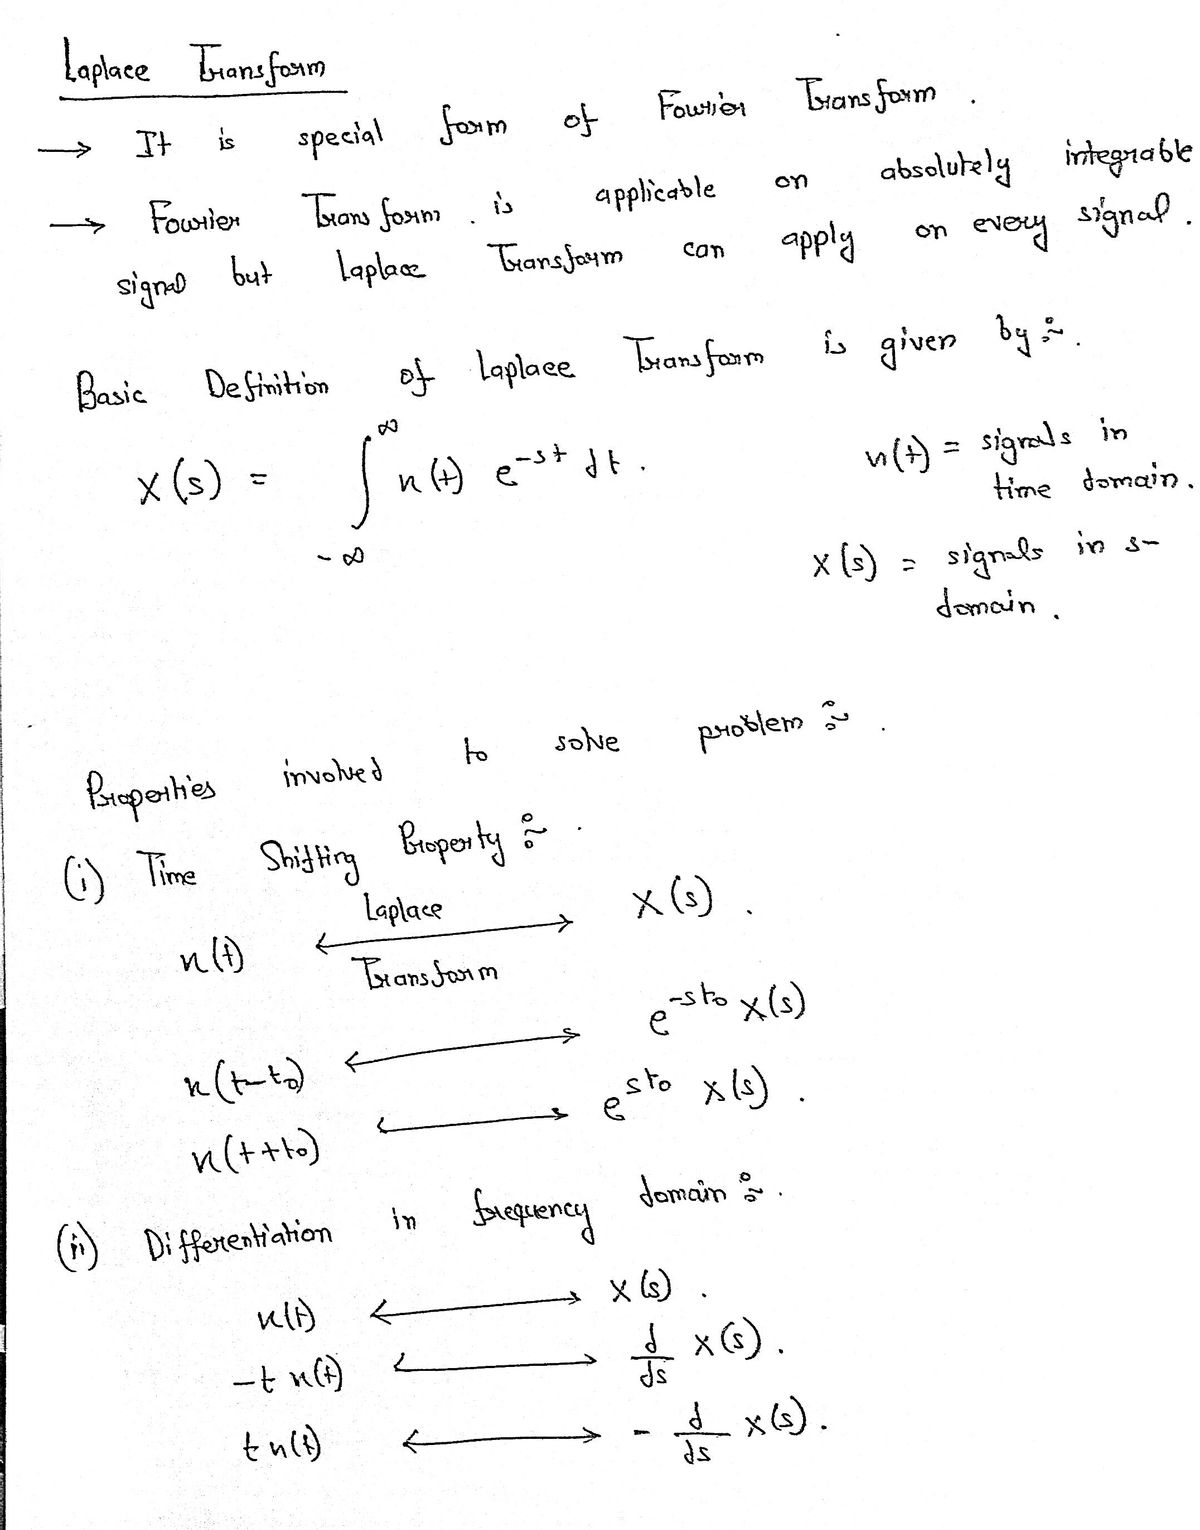 Laplace Transform
→ It is special form of Fourier Transform.
→ Fourier Transform. is applicable on absolutely integrable
signal but Laplace Transform can apply on every signal.
Basic Definition of Laplace Transform is given by :~.
X(s) = ∫_{-∞}^{∞} x(t) e^{-st} dt.
x(t) = signals in
time domain.
X(s) = signals in s-
domain.
Properties involved to solve problem :~.
(i) Time Shifting Property :~.
x(t) ←Laplace Transform→ X(s).
x(t-t₀) ←→ e^{-st₀} X(s)
x(t+t₀) ←→ e^{st₀} X(s).
(ii) Differentiation in frequency domain :~.
x(t) ←→ X(s).
-t x(t) ←→ d/ds X(s).
t x(t) ←→ - d/ds X(s).